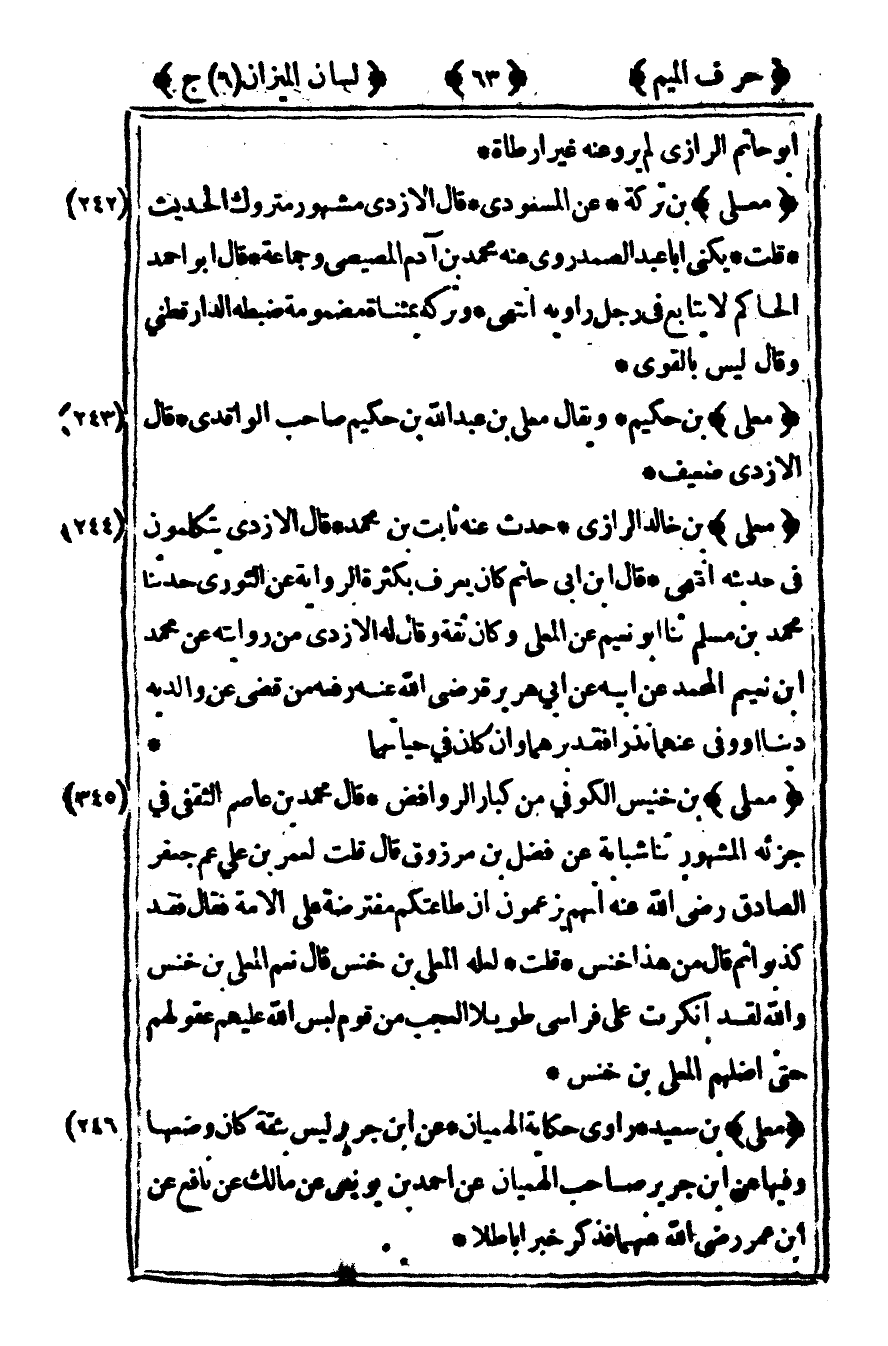 ﴿ حرف الميم ﴾ ﴿ ٦٣ ﴾ ﴿ لسان الميزان (٦) ج ﴾
ابو حاتم الرازى لم يرو عنه غير ارطاة *
﴿ معلى ﴾ بن تركة * عن المسعودى * قال الازدى مشهور متروك الحديث (٢٤٢)
* قلت * يكنى ابا عبد الصمد روى عنه محمد بن آدم المصيصى وجماعة * قال ابو احمد
الحاكم لا يتابع فى رجل راويه انتهى * وتركه بمثناة مضمومة ضبطه الدارقطني
وقال ليس بالقوى *
﴿ معلى ﴾ بن حكيم * ويقال معلى بن عبدالله بن حكيم صاحب الواقدى * قال (٢٤٣)
الازدى ضعيف *
﴿ معلى ﴾ بن خالد الرازى * حدث عنه ثابت بن محمد * قال الازدى يتكلمون (٢٤٤)
فى حديثه انتهى * قال ابن ابى حاتم كان يعرف بكثرة الرواية عن الثورى حدثنا
محمد بن مسلم ثنا ابو نعيم عن المعلى وكان ثقة وقال له الازدى من روايته عن محمد
ابن نعيم المجمد عن ابيه عن ابي هريرة رضى الله عنه رفعه من قضى عن والديه
دينا او وفى عنهما نذرا فقد برهما وان كان في حياتهما *
﴿ معلى ﴾ بن خنيس الكوفي من كبار الروافض * قال محمد بن عاصم الثقفى في (٣٤٥)
جزئه المشهور ثنا شبابة عن فضل بن مرزوق قال قلت لعمر بن علي عم جعفر
الصادق رضى الله عنه انهم يزعمون ان طاعتكم مفترضة على الامة فقال فقد
كذبوا ثم قال من هذا خنس * قلت * لعله المعلى بن خنس قال نعم المعلى بن خنس
والله لقد انكرت على فراسى طويلا العجب من قوم لبس الله عليهم عقولهم
حتى اضلهم المعلى بن خنس *
﴿ معلى ﴾ بن سعيد * راوى حكاية الهميان * عن ابن جرير ليس بثقة كان وضعها (٢٤٦
وفيها عن ابن جرير صاحب الهميان عن احمد بن يونس عن مالك عن نافع عن
ابن عمر رضى الله عنهما فذكر خبرا باطلا *